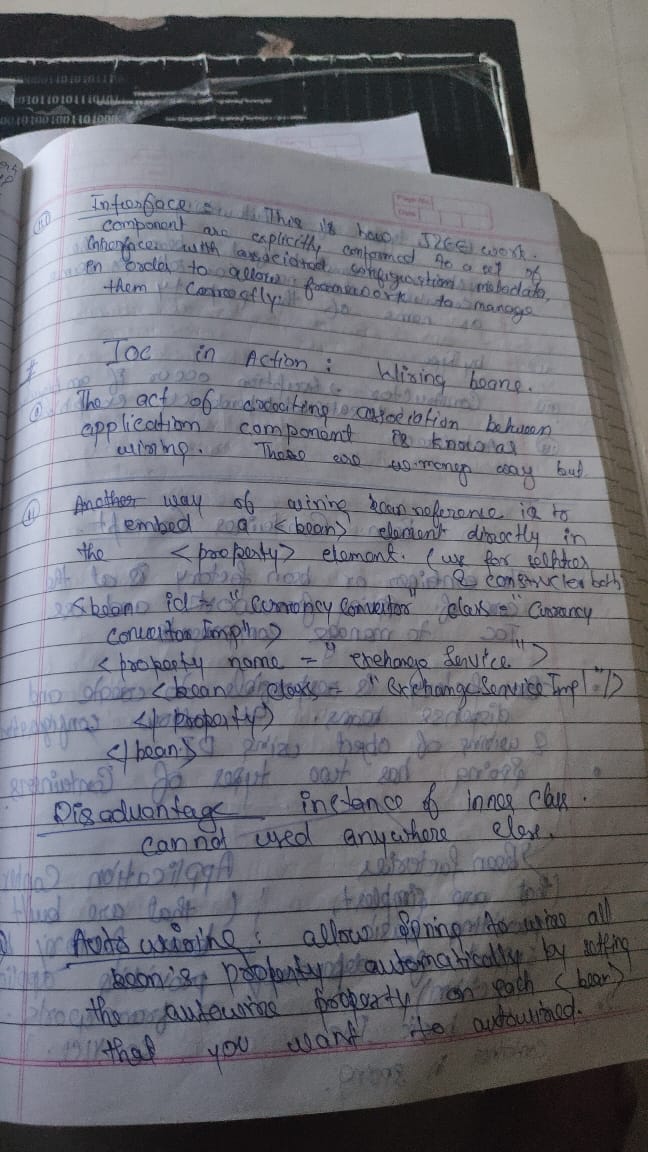 Interface : This is how J2EE work.
component are explicitly conformed to a set of
interface with associated configuration metadata,
in order to allow framework to manage
them correctly.
# IOC in Action : Wiring beans.
The act of creating association between
application component is know as
wiring. There are so many way but
Another way of wiring bean reference is to
embed a <bean> element directly in
the <property> element. (use for setter
& constructer both
<bean id = "CurrencyConvertor" class = "Currency
Convertor Impl">
<property name = "exchange Service">
<bean class = "ExchangeServiceImpl"/>
</property>
</bean>
Disadvantage instance of inner class.
cannot used anywhere else.
Auto wiring : allow Spring to wire all
bean's property automatically by setting
the autowire property on each <bean>
that you want to autowired.